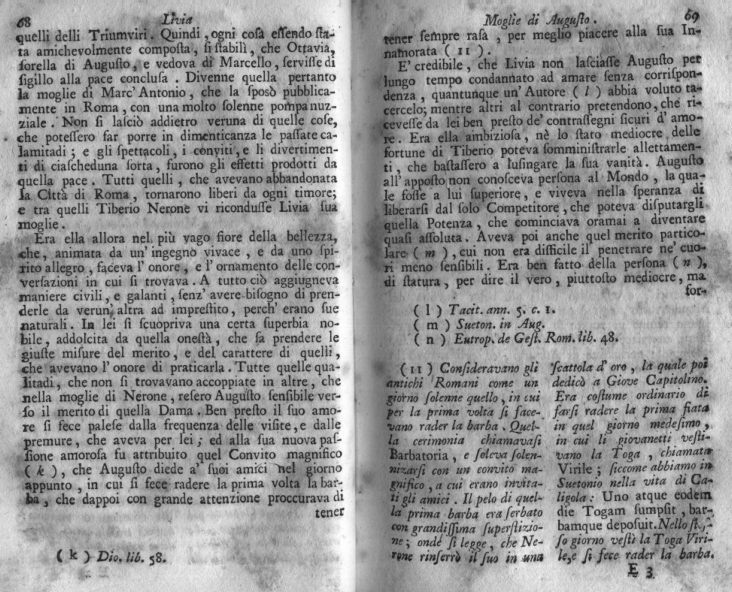 68 Livia
quelli delli Triumviri. Quindi, ogni cosa essendo sta-
ta amichevolmente composta, si stabilì, che Ottavia,
sorella di Augusto, e vedova di Marcello, servisse di
sigillo alla pace conclusa. Divenne quella pertanto
la moglie di Marc' Antonio, che la sposò pubblica-
mente in Roma, con una molto solenne pompa nuz-
ziale. Non si lasciò addietro veruna di quelle cose,
che potessero far porre in dimenticanza le passate ca-
lamitadi; e gli spettacoli, i conviti, e li divertimen-
ti di ciascheduna sorta, furono gli effetti prodotti da
quella pace. Tutti quelli, che avevano abbandonata
la Città di Roma, tornarono liberi da ogni timore;
e tra quelli Tiberio Nerone vi ricondusse Livia sua
moglie.
Era ella allora nel più vago fiore della bellezza,
che, animata da un' ingegno vivace, e da uno spi-
rito allegro, faceva l' onore, e l' ornamento delle con-
versazioni in cui si trovava. A tutto ciò aggiugneva
maniere civili, e galanti, senz' avere bisogno di pren-
derle da verun' altra ad imprestito, perch' erano sue
naturali. In lei si scuopriva una certa superbia no-
bile, addolcita da quella onestà, che sa prendere le
giuste misure del merito, e del carattere di quelli,
che avevano l' onore di praticarla. Tutte quelle qua-
litadi, che non si trovavano accoppiate in altre, che
nella moglie di Nerone, resero Augusto sensibile ver-
so il merito di quella Dama. Ben presto il suo amo-
re si fece palese dalla frequenza delle visite, e dalle
premure, che aveva per lei; ed alla sua nuova pas-
sione amorosa fu attribuito quel Convito magnifico
( k ), che Augusto diede a' suoi amici nel giorno
appunto, in cui si fece radere la prima volta la bar-
ba, che dappoi con grande attenzione proccurava di
tener
( k ) Dio. lib. 58.
Moglie di Augusto. 69
tener sempre rasa, per meglio piacere alla sua In-
namorata ( 11 ).
E' credibile, che Livia non lasciasse Augusto per
lungo tempo condannato ad amare senza corrispon-
denza, quantunque un' Autore ( l ) abbia voluto ta-
cercelo; mentre altri al contrario pretendono, che ri-
cevesse da lei ben presto de' contrassegni sicuri d' amo-
re. Era ella ambiziosa, nè lo stato mediocre delle
fortune di Tiberio poteva somministrarle allettamen-
ti, che bastassero a lusingare la sua vanità. Augusto
all' apposto non conosceva persona al Mondo, la qua-
le fosse a lui superiore, e viveva nella speranza di
liberarsi dal solo Competitore, che poteva disputargli
quella Potenza, che cominciava oramai a diventare
quasi assoluta. Aveva poi anche quel merito partico-
lare ( m ), cui non era difficile il penetrare ne' cuo-
ri meno sensibili. Era ben fatto della persona ( n ),
di statura, per dire il vero, piuttosto mediocre, ma
for-
( l ) Tacit. ann. 5. c. 1.
( m ) Sueton. in Aug.
( n ) Eutrop. de Gest. Rom. lib. 48.
( 11 ) Consideravano gli
antichi Romani come un
giorno solenne quello, in cui
per la prima volta si face-
vano radere la barba. Quel-
la cerimonia chiamavasi
Barbatoria, e soleva solen-
nizarsi con un convito ma-
gnifico, a cui erano invita-
ti gli amici. Il pelo di quel-
la prima barba era serbato
con grandissima superstizio-
ne; onde si legge, che Ne-
rone rinserrò il suo in una
scattola d' oro, la quale poi
dedicò a Giove Capitolino.
Era costume ordinario di
farsi radere la prima fiata
in quel giorno medesimo,
in cui li giovanetti vesti-
vano la Toga, chiamata
Virile; siccome abbiamo in
Suetonio nella vita di Ca-
ligola: Uno atque eodem
die Togam sumpsit, bar-
bamque deposuit. Nello stes-
so giorno vestì la Toga Viri-
le, e si fece rader la barba.
E 3